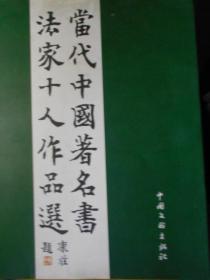 當代中國著名書
法家十人作品選
康莊題
中国文联出版社